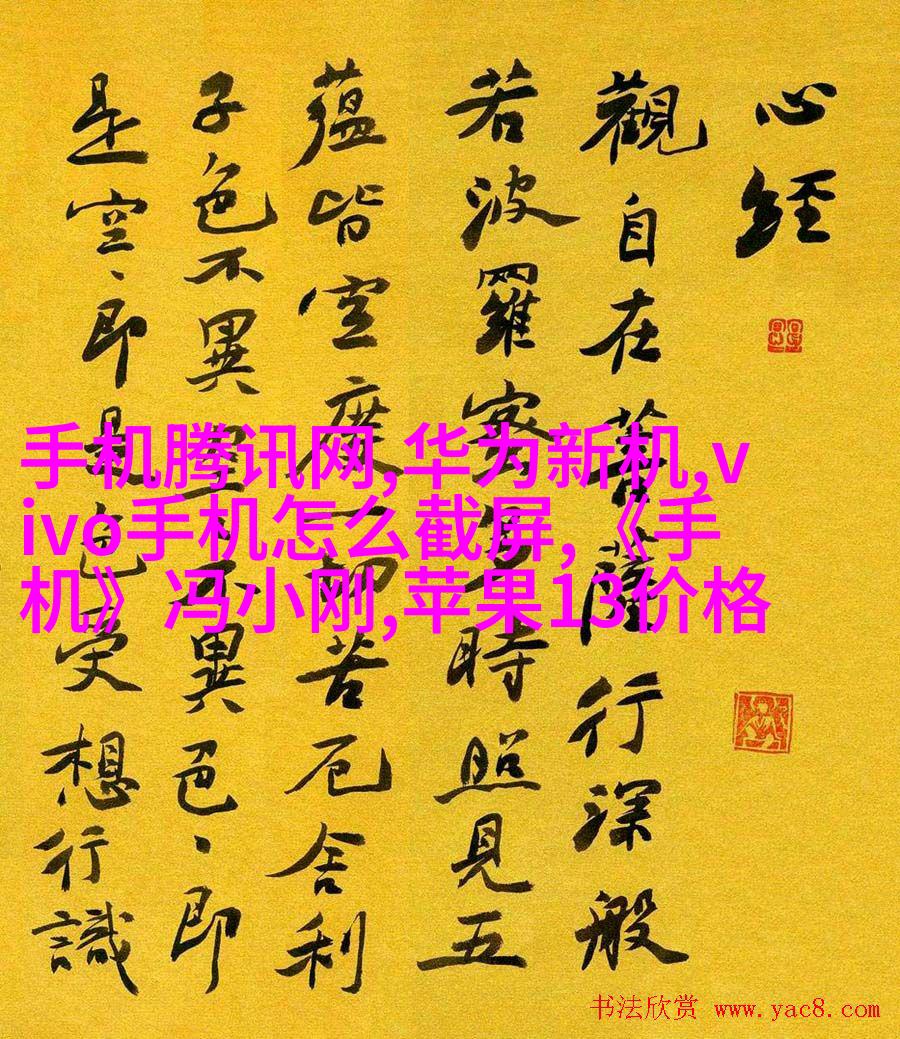 心經
觀自在菩薩行深般
若波羅蜜多時照見五
蘊皆空度一切苦厄舍利
子色不異空不異色、即
是空、即是色受想行識
手机腾讯网,华为新机,v
ivo手机怎么截屏,《手
机》冯小刚,苹果13价格
书法欣赏 www.yac8.com